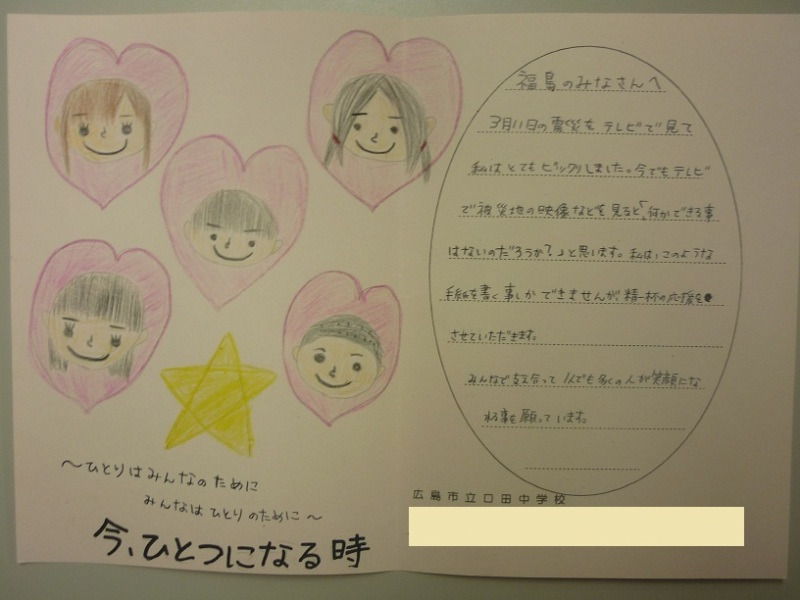 〜ひとりはみんなのために
みんなはひとりのために〜
今、ひとつになる時
福島のみなさんへ
3月11日の震災をテレビで見て
私はとてもビックリしました。今でもテレビ
で被災地の映像などを見ると「何かできる事
はないのだろうか？」と思います。私は、このような
手紙を書く事しかできませんが、精一杯の応援を
させていただきます。
みんなで支え合って1人でも多くの人が笑顔にな
れる事を願っています。
広島市立口田中学校